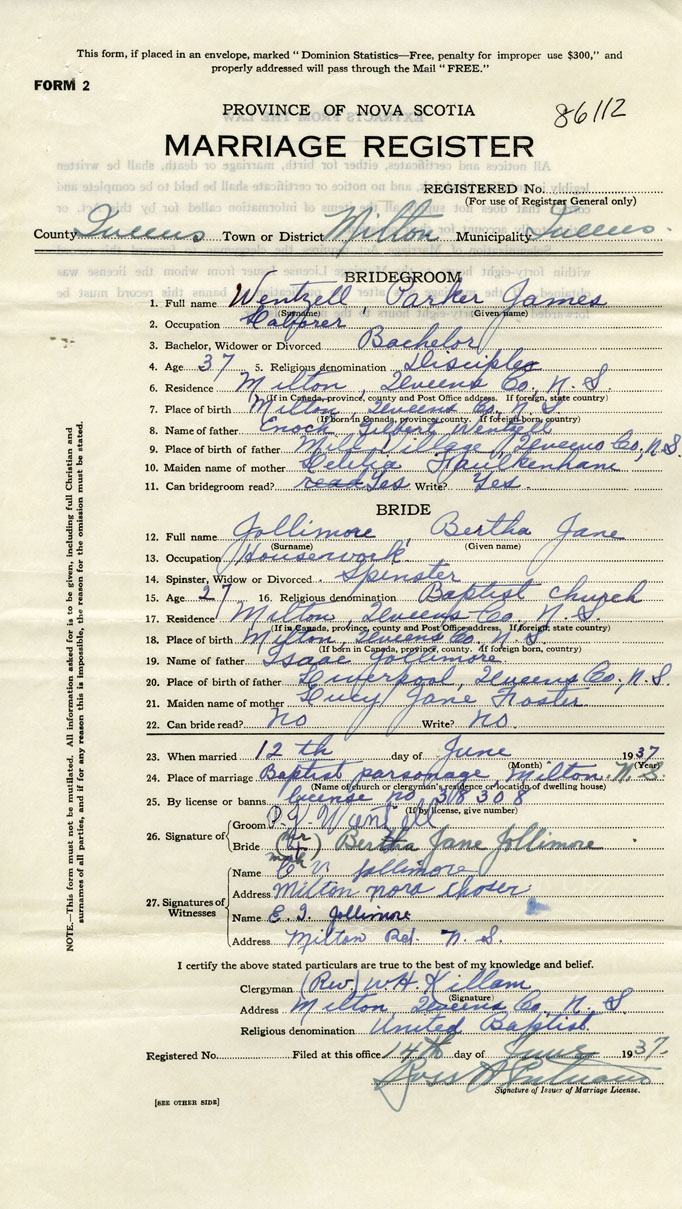 This form, if placed in an envelope, marked "Dominion Statistics—Free, penalty for improper use $300," and
properly addressed will pass through the Mail "FREE."
FORM 2
PROVINCE OF NOVA SCOTIA
86112
MARRIAGE REGISTER
REGISTERED No.
(For use of Registrar General only)
County Queens Town or District Milton Municipality Queens
BRIDEGROOM
1. Full name Wentzell Parker James
(Surname) (Given name)
2. Occupation Laborer
3. Bachelor, Widower or Divorced Bachelor
4. Age 37 5. Religious denomination Disciples
6. Residence Milton, Queens Co, N. S.
(If in Canada, province, county and Post Office address. If foreign, state country)
7. Place of birth Milton, Queens Co, N. S.
(If born in Canada, province, county. If foreign-born, country)
8. Name of father Enoch Gilbert Wentzell
9. Place of birth of father Mill Village, Queens Co, N.S.
10. Maiden name of mother Faulkenham
11. Can bridegroom read? read Yes Write? Yes
BRIDE
12. Full name Jollimore, Bertha Jane
(Surname) (Given name)
13. Occupation Housework
14. Spinster, Widow or Divorced Spinster
15. Age 27 16. Religious denomination Baptist church
17. Residence Milton, Queens Co, N. S.
(If in Canada, province, county and Post Office address. If foreign, state country)
18. Place of birth Milton, Queens Co, N. S.
(If born in Canada, province, county. If foreign born, country)
19. Name of father Isaac Jollimore
20. Place of birth of father Liverpool, Queens Co., N. S.
21. Maiden name of mother Lucy Jane Foster
22. Can bride read? No Write? No
23. When married 12 th day of June 1937
(Month) (Year)
24. Place of marriage Baptist parsonage, Milton, N. S.
(Name of church or clergyman's residence or location of dwelling house)
25. By license or banns license no 318308
(If by license, give number)
26. Signature of
Groom P. J. Wentzell
Bride (her mark) Bertha Jane Jollimore
27. Signatures of Witnesses
Name Jollimore
Address Milton nova
Name E. I. Jollimore
Address Milton Rd. N. S.
I certify the above stated particulars are true to the best of my knowledge and belief.
Clergyman (Rev.) W. H. Killam
(Signature)
Address Milton, Queens Co, N. S.
Religious denomination United Baptist
Registered No. Filed at this office 14th day of June 1937.
Signature of Issuer of Marriage License.
[SEE OTHER SIDE]
NOTE.—This form must not be mutilated. All information asked for is to be given, including full Christian and
surnames of all parties, and if for any reason this is impossible, the reason for the omission must be stated.